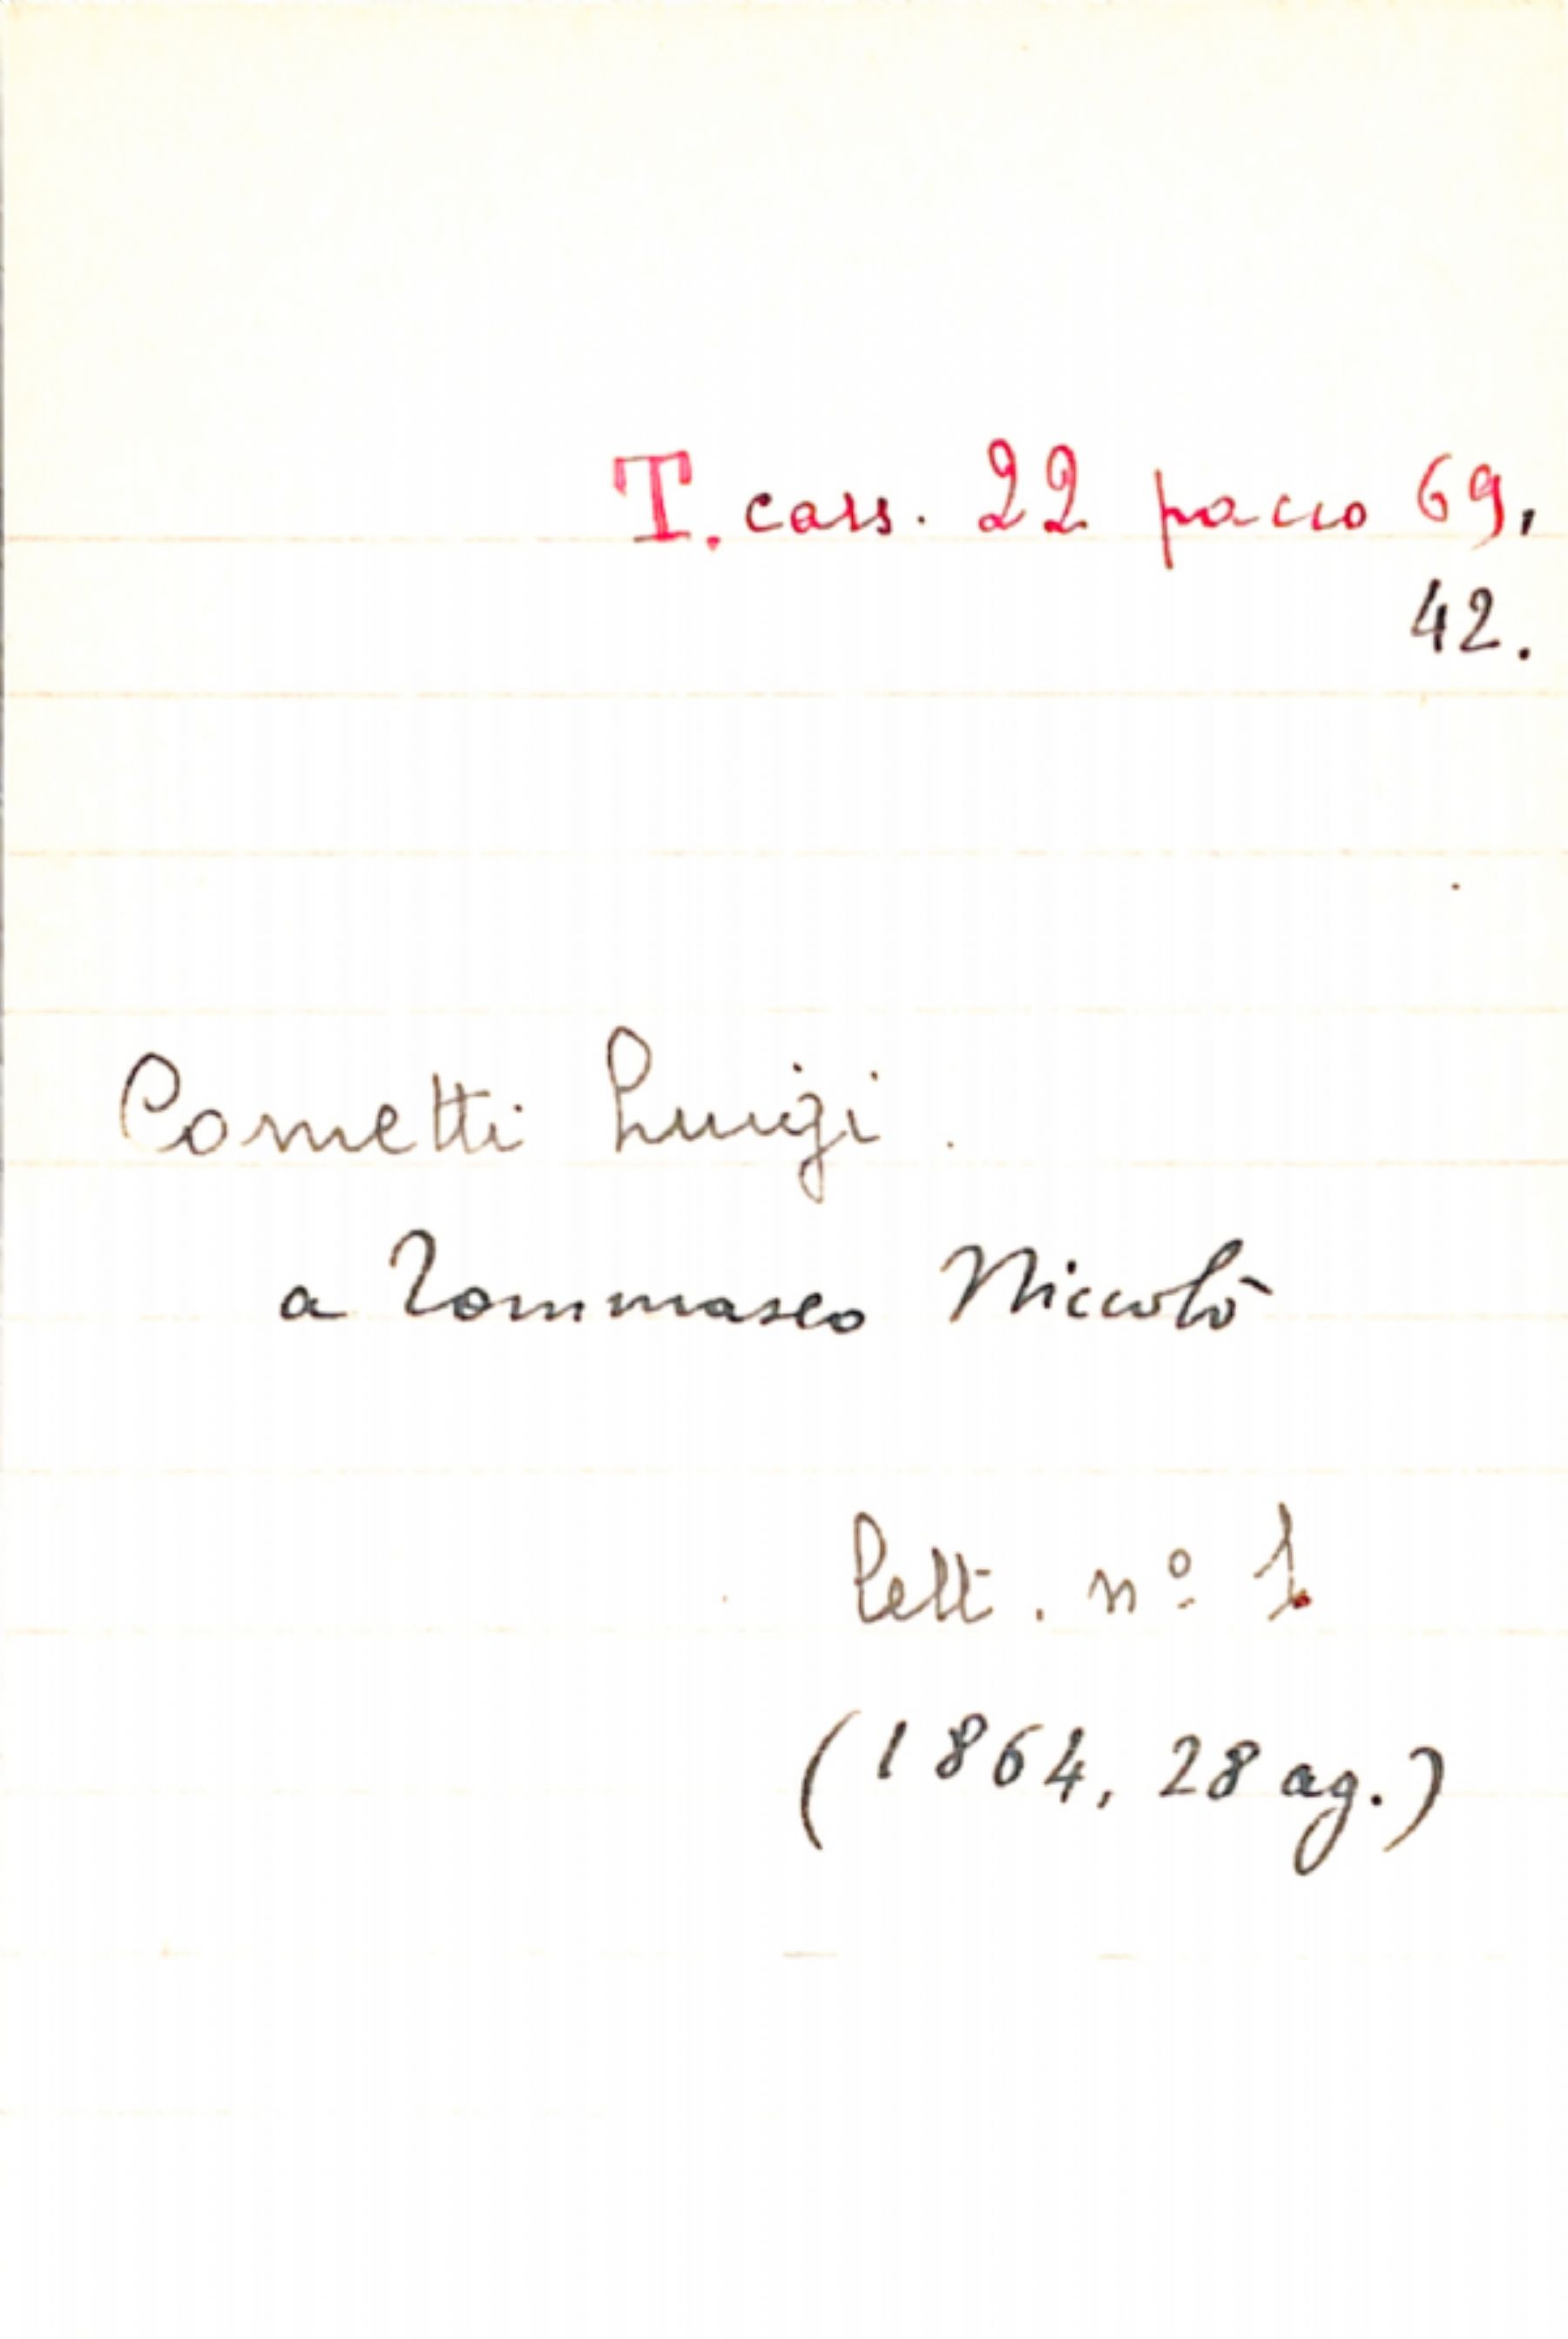 T. cass. 22 pacco 69,
42.
Cometti Luigi.
a Tommaseo Niccolò
lett. nº 1.
(1864, 28 ag.)